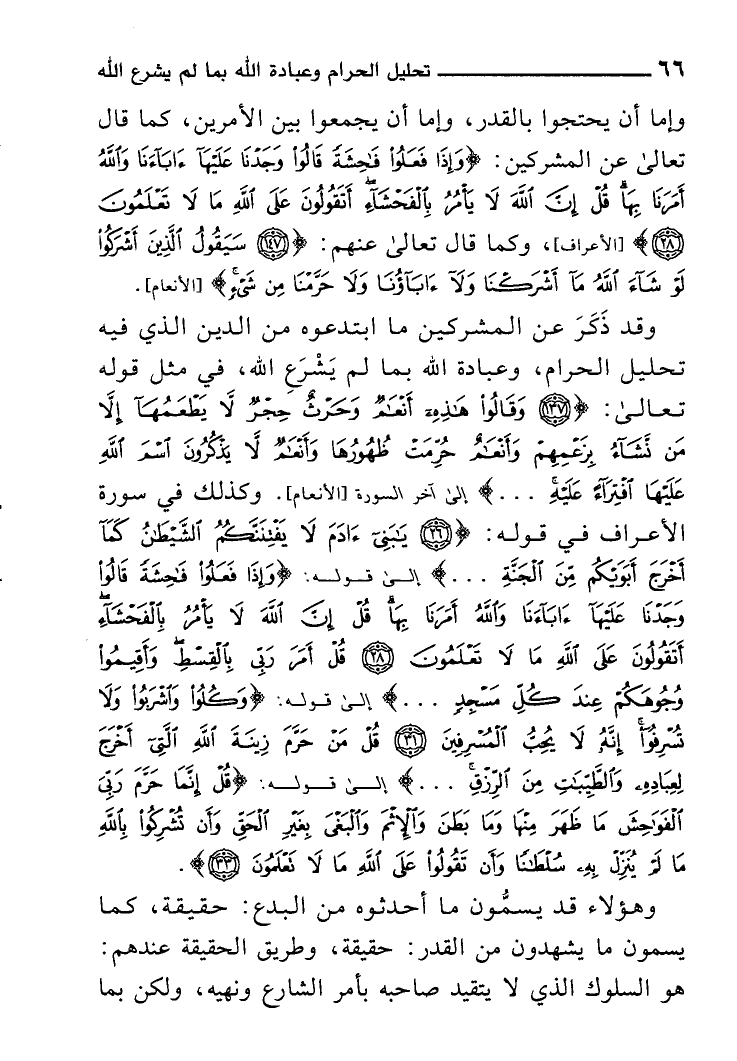 ٦٦ ــــــــــــــــ تحليل الحرام وعبادة الله بما لم يشرع الله
وإما أن يحتجوا بالقدر، وإما أن يجمعوا بين الأمرين، كما قال
تعالىٰ عن المشركين: ﴿وَإِذَا فَعَلُوا۟ فَٰحِشَةً قَالُوا۟ وَجَدْنَا عَلَيْهَآ ءَابَآءَنَا وَٱللَّهُ
أَمَرَنَا بِهَا ۗ قُلْ إِنَّ ٱللَّهَ لَا يَأْمُرُ بِٱلْفَحْشَآءِ ۖ أَتَقُولُونَ عَلَى ٱللَّهِ مَا لَا تَعْلَمُونَ
﴿٢٨﴾﴾ [الأعراف]، وكما قال تعالىٰ عنهم: ﴿﴿١٤٧﴾ سَيَقُولُ ٱلَّذِينَ أَشْرَكُوا۟
لَوْ شَآءَ ٱللَّهُ مَآ أَشْرَكْنَا وَلَآ ءَابَآؤُنَا وَلَا حَرَّمْنَا مِن شَىْءٍ ۚ﴾ [الأنعام].
وقد ذَكَرَ عن المشركين ما ابتدعوه من الدين الذي فيه
تحليل الحرام، وعبادة الله بما لم يَشْرَعِ الله، في مثل قوله
تعالىٰ: ﴿﴿١٣٧﴾ وَقَالُوا۟ هَٰذِهِۦٓ أَنْعَٰمٌ وَحَرْثٌ حِجْرٌ لَّا يَطْعَمُهَآ إِلَّا
مَن نَّشَآءُ بِزَعْمِهِمْ وَأَنْعَٰمٌ حُرِّمَتْ ظُهُورُهَا وَأَنْعَٰمٌ لَّا يَذْكُرُونَ ٱسْمَ ٱللَّهِ
عَلَيْهَا ٱفْتِرَآءً عَلَيْهِ ۚ ...﴾ إلىٰ آخر السورة [الأنعام]. وكذلك في سورة
الأعراف في قوله: ﴿﴿٢٦﴾ يَٰبَنِىٓ ءَادَمَ لَا يَفْتِنَنَّكُمُ ٱلشَّيْطَٰنُ كَمَآ
أَخْرَجَ أَبَوَيْكُم مِّنَ ٱلْجَنَّةِ ...﴾ إلىٰ قوله: ﴿وَإِذَا فَعَلُوا۟ فَٰحِشَةً قَالُوا۟
وَجَدْنَا عَلَيْهَآ ءَابَآءَنَا وَٱللَّهُ أَمَرَنَا بِهَا ۗ قُلْ إِنَّ ٱللَّهَ لَا يَأْمُرُ بِٱلْفَحْشَآءِ ۖ
أَتَقُولُونَ عَلَى ٱللَّهِ مَا لَا تَعْلَمُونَ ﴿٢٨﴾ قُلْ أَمَرَ رَبِّى بِٱلْقِسْطِ ۖ وَأَقِيمُوا۟
وُجُوهَكُمْ عِندَ كُلِّ مَسْجِدٍ ...﴾ إلىٰ قوله: ﴿وَكُلُوا۟ وَٱشْرَبُوا۟ وَلَا
تُسْرِفُوٓا۟ ۚ إِنَّهُۥ لَا يُحِبُّ ٱلْمُسْرِفِينَ ﴿٣١﴾ قُلْ مَنْ حَرَّمَ زِينَةَ ٱللَّهِ ٱلَّتِىٓ أَخْرَجَ
لِعِبَادِهِۦ وَٱلطَّيِّبَٰتِ مِنَ ٱلرِّزْقِ ۚ ...﴾ إلىٰ قوله: ﴿قُلْ إِنَّمَا حَرَّمَ رَبِّىَ
ٱلْفَوَٰحِشَ مَا ظَهَرَ مِنْهَا وَمَا بَطَنَ وَٱلْإِثْمَ وَٱلْبَغْىَ بِغَيْرِ ٱلْحَقِّ وَأَن تُشْرِكُوا۟ بِٱللَّهِ
مَا لَمْ يُنَزِّلْ بِهِۦ سُلْطَٰنًا وَأَن تَقُولُوا۟ عَلَى ٱللَّهِ مَا لَا تَعْلَمُونَ ﴿٣٣﴾﴾.
وهؤلاء قد يسمُّون ما أحدثوه من البدع: حقيقة، كما
يسمون ما يشهدون من القدر: حقيقة، وطريق الحقيقة عندهم:
هو السلوك الذي لا يتقيد صاحبه بأمر الشارع ونهيه، ولكن بما